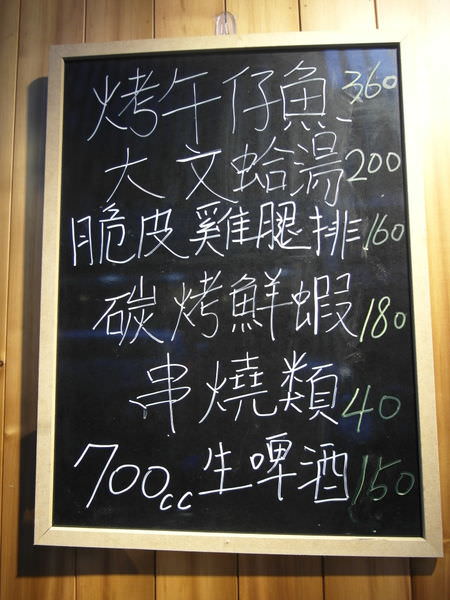 烤午仔魚 360
大文蛤湯 200
脆皮雞腿排 160
碳烤鮮蝦 180
串燒類 40
700cc生啤酒 150